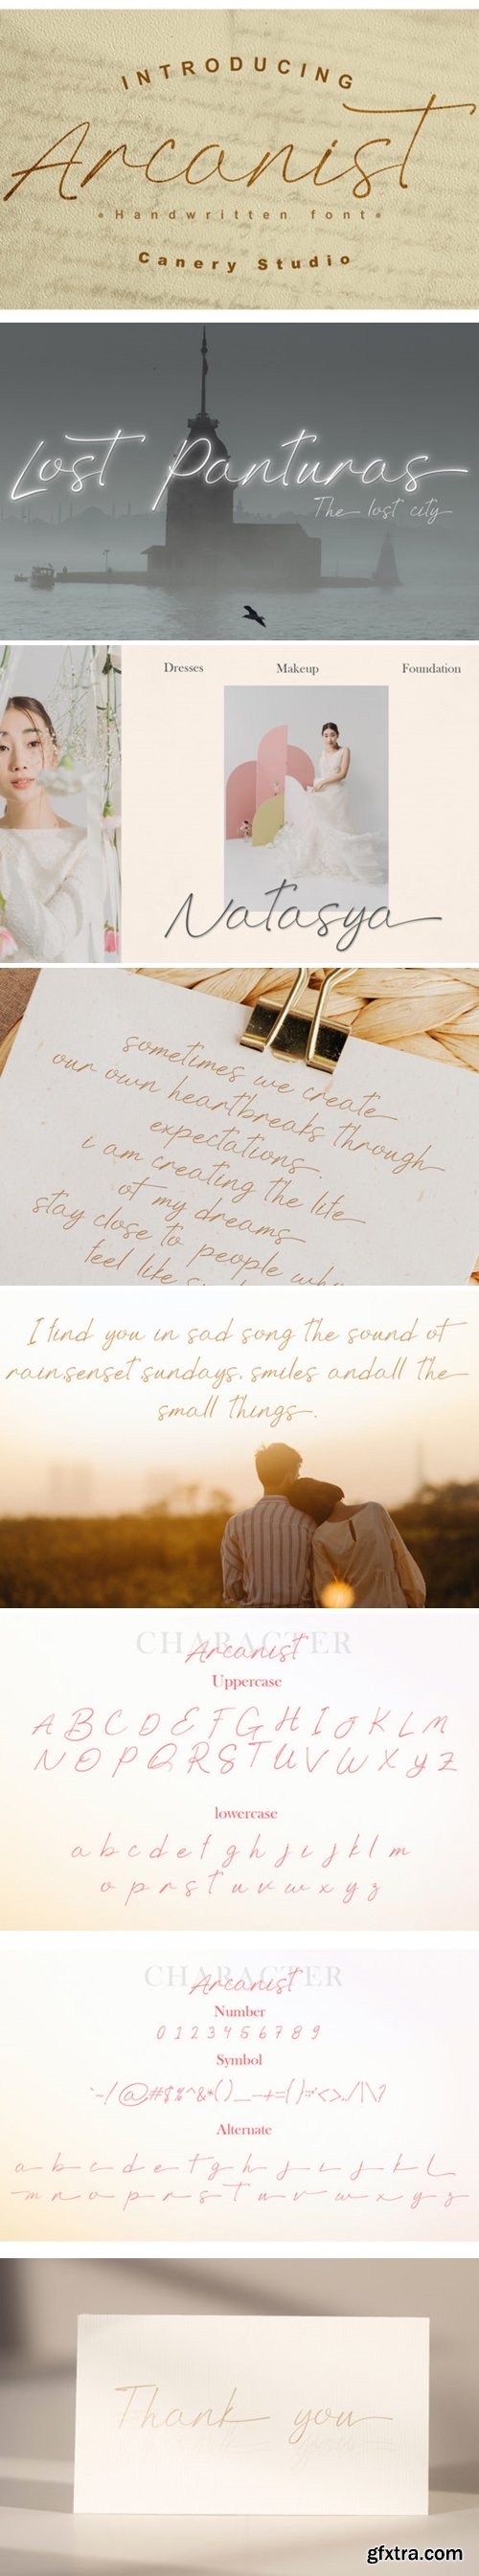 INTRODUCING
Arcanist
• Handwritten font •
Canery Studio
Lost Panturas
The lost city
Dresses Makeup Foundation
Natasya
sometimes we create
our own heartbreaks through
expectations.
i am creating the life
of my dreams
stay close to people who
feel like
I find you in sad song the sound of
rain,senset,sundays, smiles andall the
small things.
CHARACTER
Arcanist
Uppercase
A B C D E F G H I J K L M
N O P Q R S T U V W X Y Z
lowercase
a b c d e f g h j i j k l m
o p r s t u v w x y z
CHARACTER
Arcanist
Number
0 1 2 3 4 5 6 7 8 9
Symbol
Alternate
a b c d e f g h j i j k l
m n o p r s t u v w x y z
Thank you
gfxtra.com